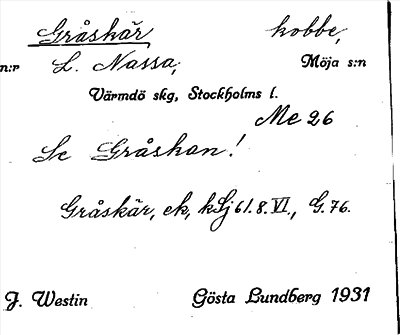 Gråskär, kobbe,
n:r L. Nassa, Möja s:n
Värmdö skg, Stockholms l.
Me 26
Se Gråskan!
Gråskär, ek, kSj 61.8.VI., G.76.
J. Westin Gösta Lundberg 1931